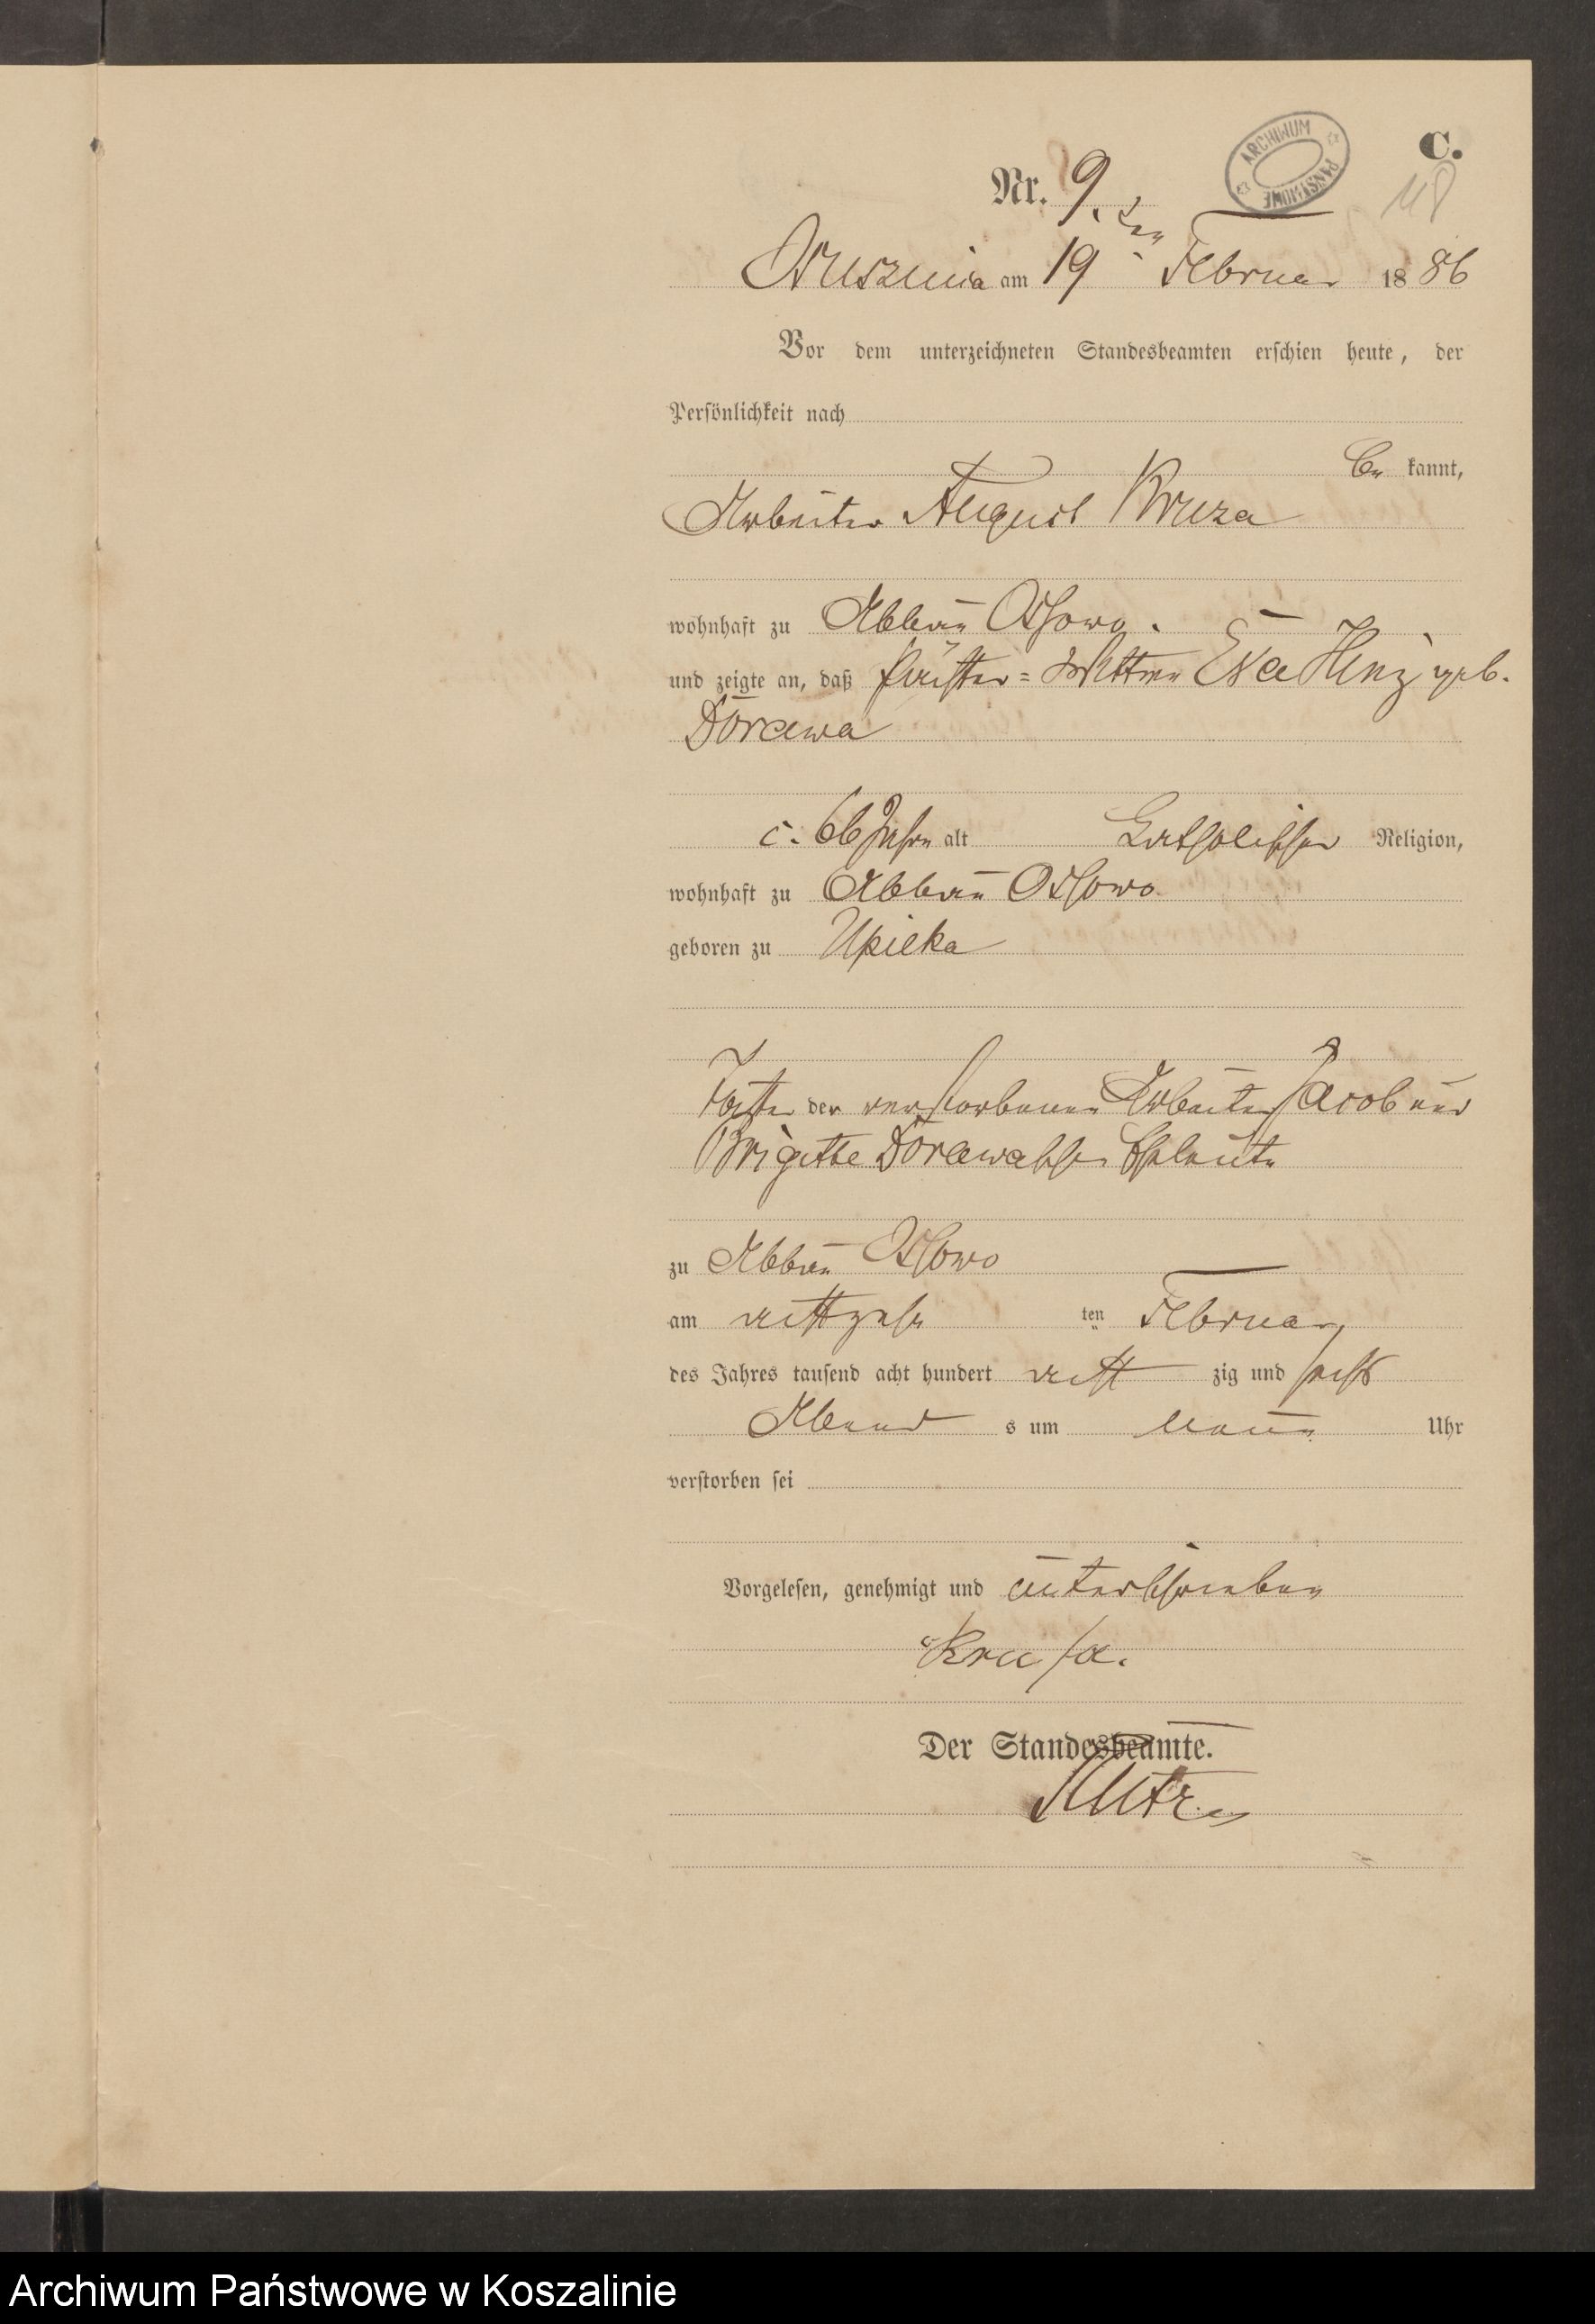 C.
ARCHIWUM PAŃSTWOWE
Nr. 9.
118
Oslusznica am 19ten Februar 1886
Vor dem unterzeichneten Standesbeamten erschien heute, der
Persönlichkeit nach
be kannt,
Arbeiter August Kruza
wohnhaft zu Abbau Ossowo.
und zeigte an, daß Wittwe Eva Hinz geb.
Dorawa
c. 66 Jahre alt katholischer Religion,
wohnhaft zu Abbau Ossowo
geboren zu Upilka
Tochter der verstorbenen Arbeiter Jacob und
Brigitte Dorawaschen Eheleute
zu Abbau Ossowo
am achtzehn ten Februar
des Jahres tausend acht hundert acht zig und sechs
Abend s um neun Uhr
verstorben sei
Vorgelesen, genehmigt und unterschrieben
Krusa.
Der Standesbeamte.
Archiwum Państwowe w Koszalinie